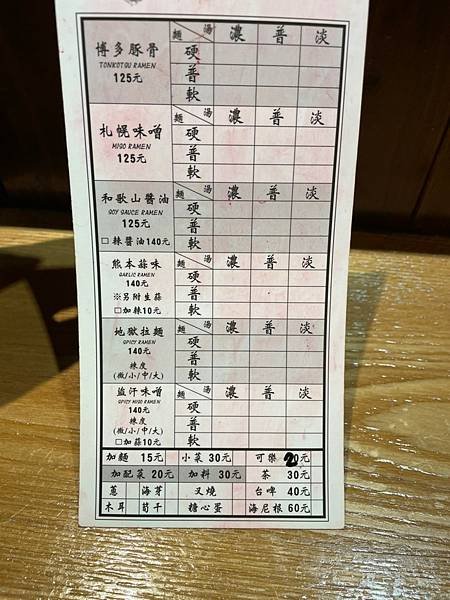 博多豚骨 麵 湯 濃 普 淡
TONKOTSU RAMEN 硬
125元 普
軟
札幌味噌 麵 湯 濃 普 淡
MISO RAMEN 硬
125元 普
軟
和歌山醬油 麵 湯 濃 普 淡
SOY SAUCE RAMEN 硬
125元 普
□ 辣醬油140元 軟
熊本蒜味 麵 湯 濃 普 淡
GARLIC RAMEN 硬
140元
※另附生蒜 普
□加辣10元 軟
地獄拉麵 麵 湯 濃 普 淡
SPICY RAMEN 硬
140元
辣度 普
(微/小/中/大) 軟
盜汗味噌 麵 湯 濃 普 淡
SPICY MISO RAMEN 硬
140元
辣度 普
(微/小/中/大)
□加蒜10元 軟
加麵 15元 小菜 30元 可樂 20元
加配菜 20元 加料 30元 茶 30元
蔥 海芽 叉燒 台啤 40元
木耳 筍干 糖心蛋 海尼根 60元